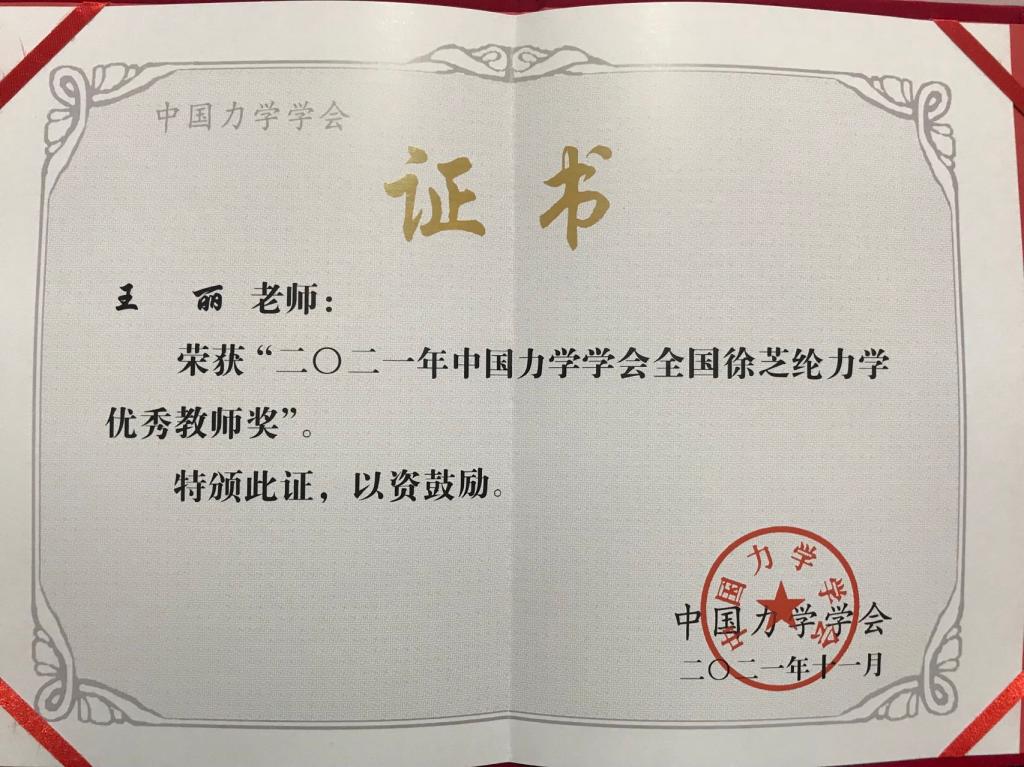 中国力学学会
证书
王 丽 老师：
荣获“二〇二一年中国力学学会全国徐芝纶力学
优秀教师奖”。
特颁此证，以资鼓励。
中国力学学会
中国力学学会
二〇二一年十一月